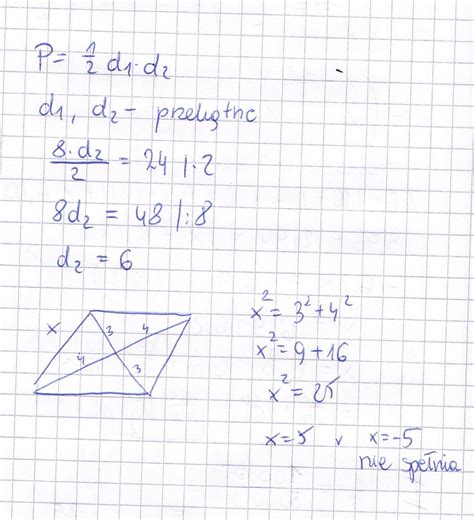 P = 1/2 d1·d2
d1, d2 - przekątne
8·d2/2 = 24 |·2
8d2 = 48 |:8
d2 = 6
x 3 4
4 3
x² = 3² + 4²
x² = 9 + 16
x² = 25
x = 5 v x = -5
nie spełnia